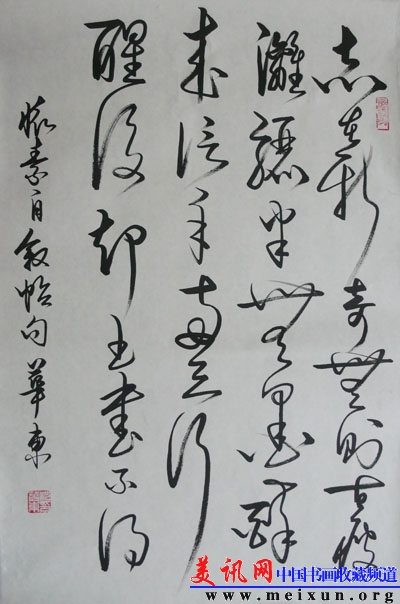 志在新奇無定則古瘦
灕驪半無墨醉
來信手兩三行
醒後却书書不得
懷素自敘帖句 華東
美讯网 中国书画收藏频道
www.meixun.org